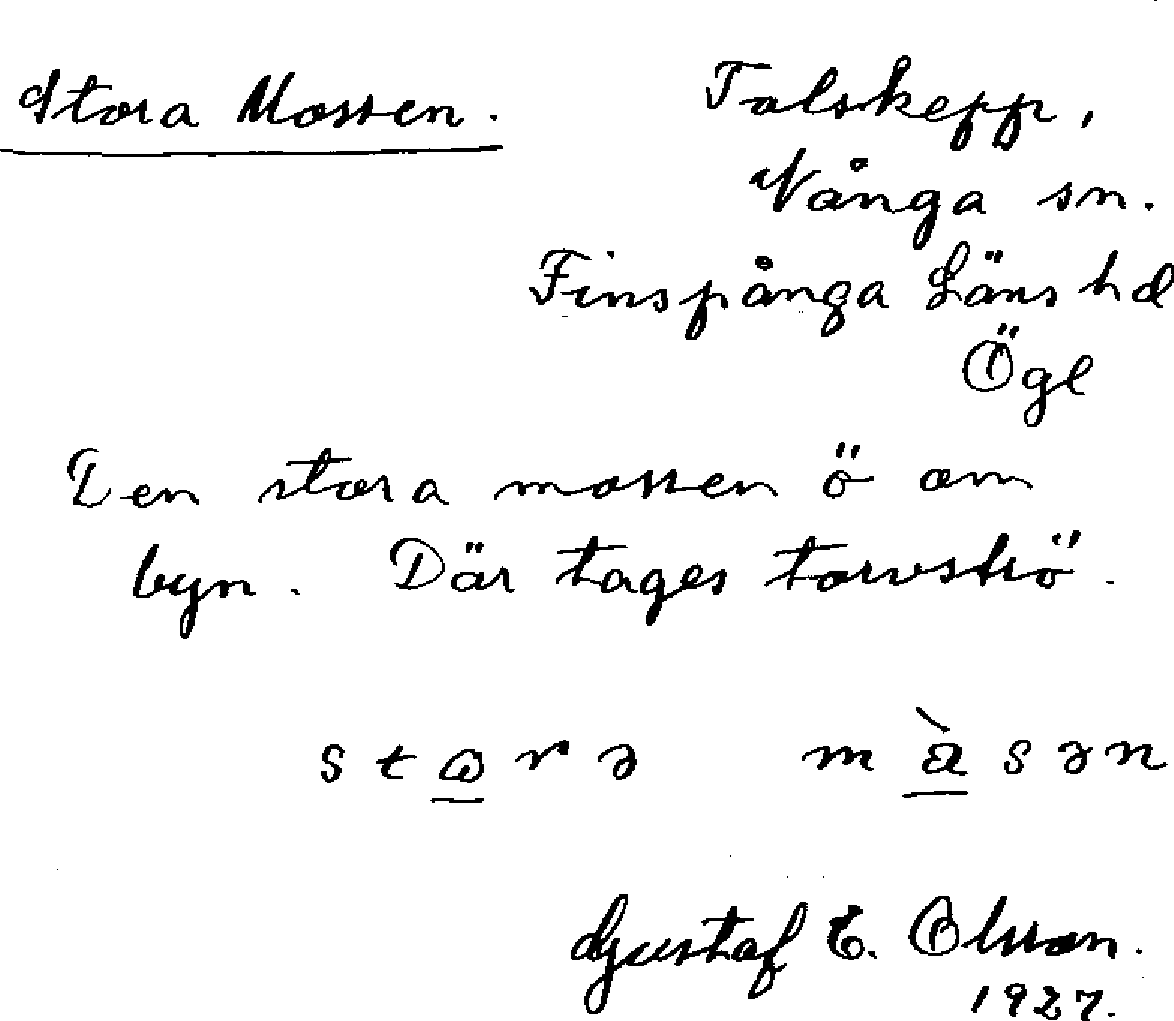 Stora Mossen.
Tolskepp,
Vånga sn.
Finspånga Läns hd
Ögl
Den stora mossen ö om
byn. Där tages torvströ.
stɷrə màsən
Gustaf E. Olsson.
1927.